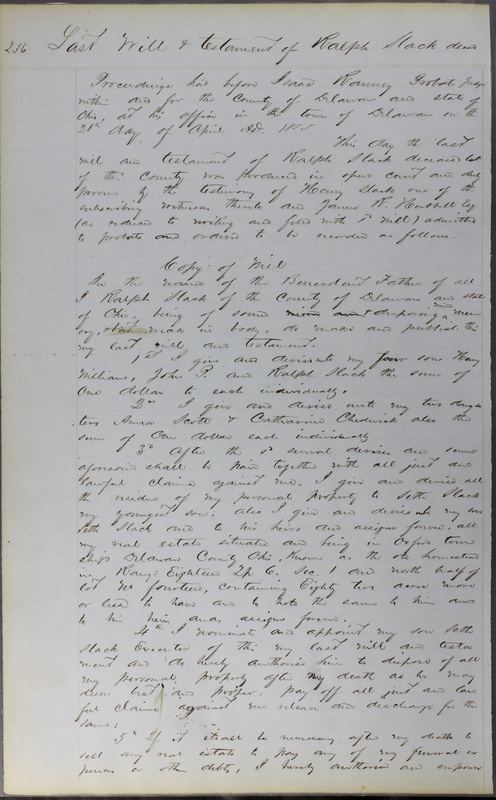 236 Last Will & testament of Ralph Slack decd
Proceedings had before Isaac Ranney Probate Judge
within and for the County of Delaware and state of
Ohio, at his office in the town of Delaware on the
21st day of April AD.
This day the last
will and testament of Ralph Slack deceased late
of this County was produced in open court and duly
proven by the testimony of Henry Slack one of the
subscribing witnesses thereto and James R. Hubbell Esq
(as reduced to writing and filed with sd will) admitted
to probate and ordered to be recorded as follows.
Copy of Will
In the name of the Benevolent Father of all
I Ralph Slack of the County of Delaware and state
of Ohio, being of sound and disposing mind mem
ory, weak in body, do make and publish this
my last will and testament.
1st I give and devise unto my four sons Henry
William, John P. and Ralph Slack the sum of
One dollar to each individually.
2nd I give and devise unto my two daugh
ters Anna Scott & Catharine Chedwick also the
sum of One dollar each individually
3d After the sd several devises and sums
aforesaid shall be paid together with all just and
lawful claims against me. I give and devise all
the residue of my personal property to Seth Slack
my youngest son. also I give and devise unto my son
Seth Slack and to his heirs and assigns forever all
my real estate situated and being in Oxford town
ship Delaware County Ohio, Known as the old homestead
in Range Eighteen Tp 6. Sec. 1 and north half of
lot No fourteen, containing Eighty two acres more
or less to have and to hold the same to him and
to his heirs and assigns forever.
4th I nominate and appoint my son Seth
Slack Executor of this my last will and testa
ment and do hereby authorise him to dispose of all
my personal property after my death as he may
deem best and proper. Pay off all just and law
ful claims against me release and discharge for the
same:
5th If it shall be necessary after my death to
sell any real estate to pay any of my funeral ex
penses or other debts, I hereby authorise and empower